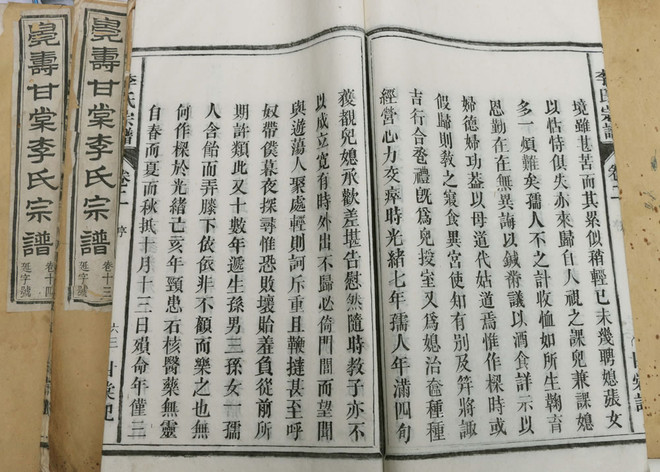 境雖甚苦而其累似稍輕已未幾聘媳張女
以怙恃俱失亦來歸自人視之課兒兼課媳
多一煩難矣孺人不之計收恤如所生鞠育
恩勤在在無異誨以鍼黹議以酒食詳示以
婦德婦功葢以母道代姑道焉惟作樑時或
假歸則教之寢食異宮使知有別及笄將諏
吉行合卺禮旣爲兒授室又爲媳治奩種種
經營心力交瘁時光緒七年孺人年滿四旬
獲覩兒媳承歡差堪告慰然隨時教子亦不
以成立寬有時外出不歸必倚門閭而望聞
與遊蕩人聚處輕則訶斥重且鞭撻甚至呼
奴帶僕暮夜探尋惟恐敗壞貽羞負從前所
期許類此又十數年遞生孫男三孫女一孺
人含飴而弄膝下依依非不顧而樂之也無
何作樑於光緒己亥年頸患石核醫藥無靈
自春而夏而秋抵十月十三日殞命年僅三
李氏宗譜
卷二
序
六三
甘棠記
李氏宗譜
卷二
序
甘棠記
甘棠李氏宗譜
卷十三
延字號
壽甘棠李氏宗譜
卷十四
延字號